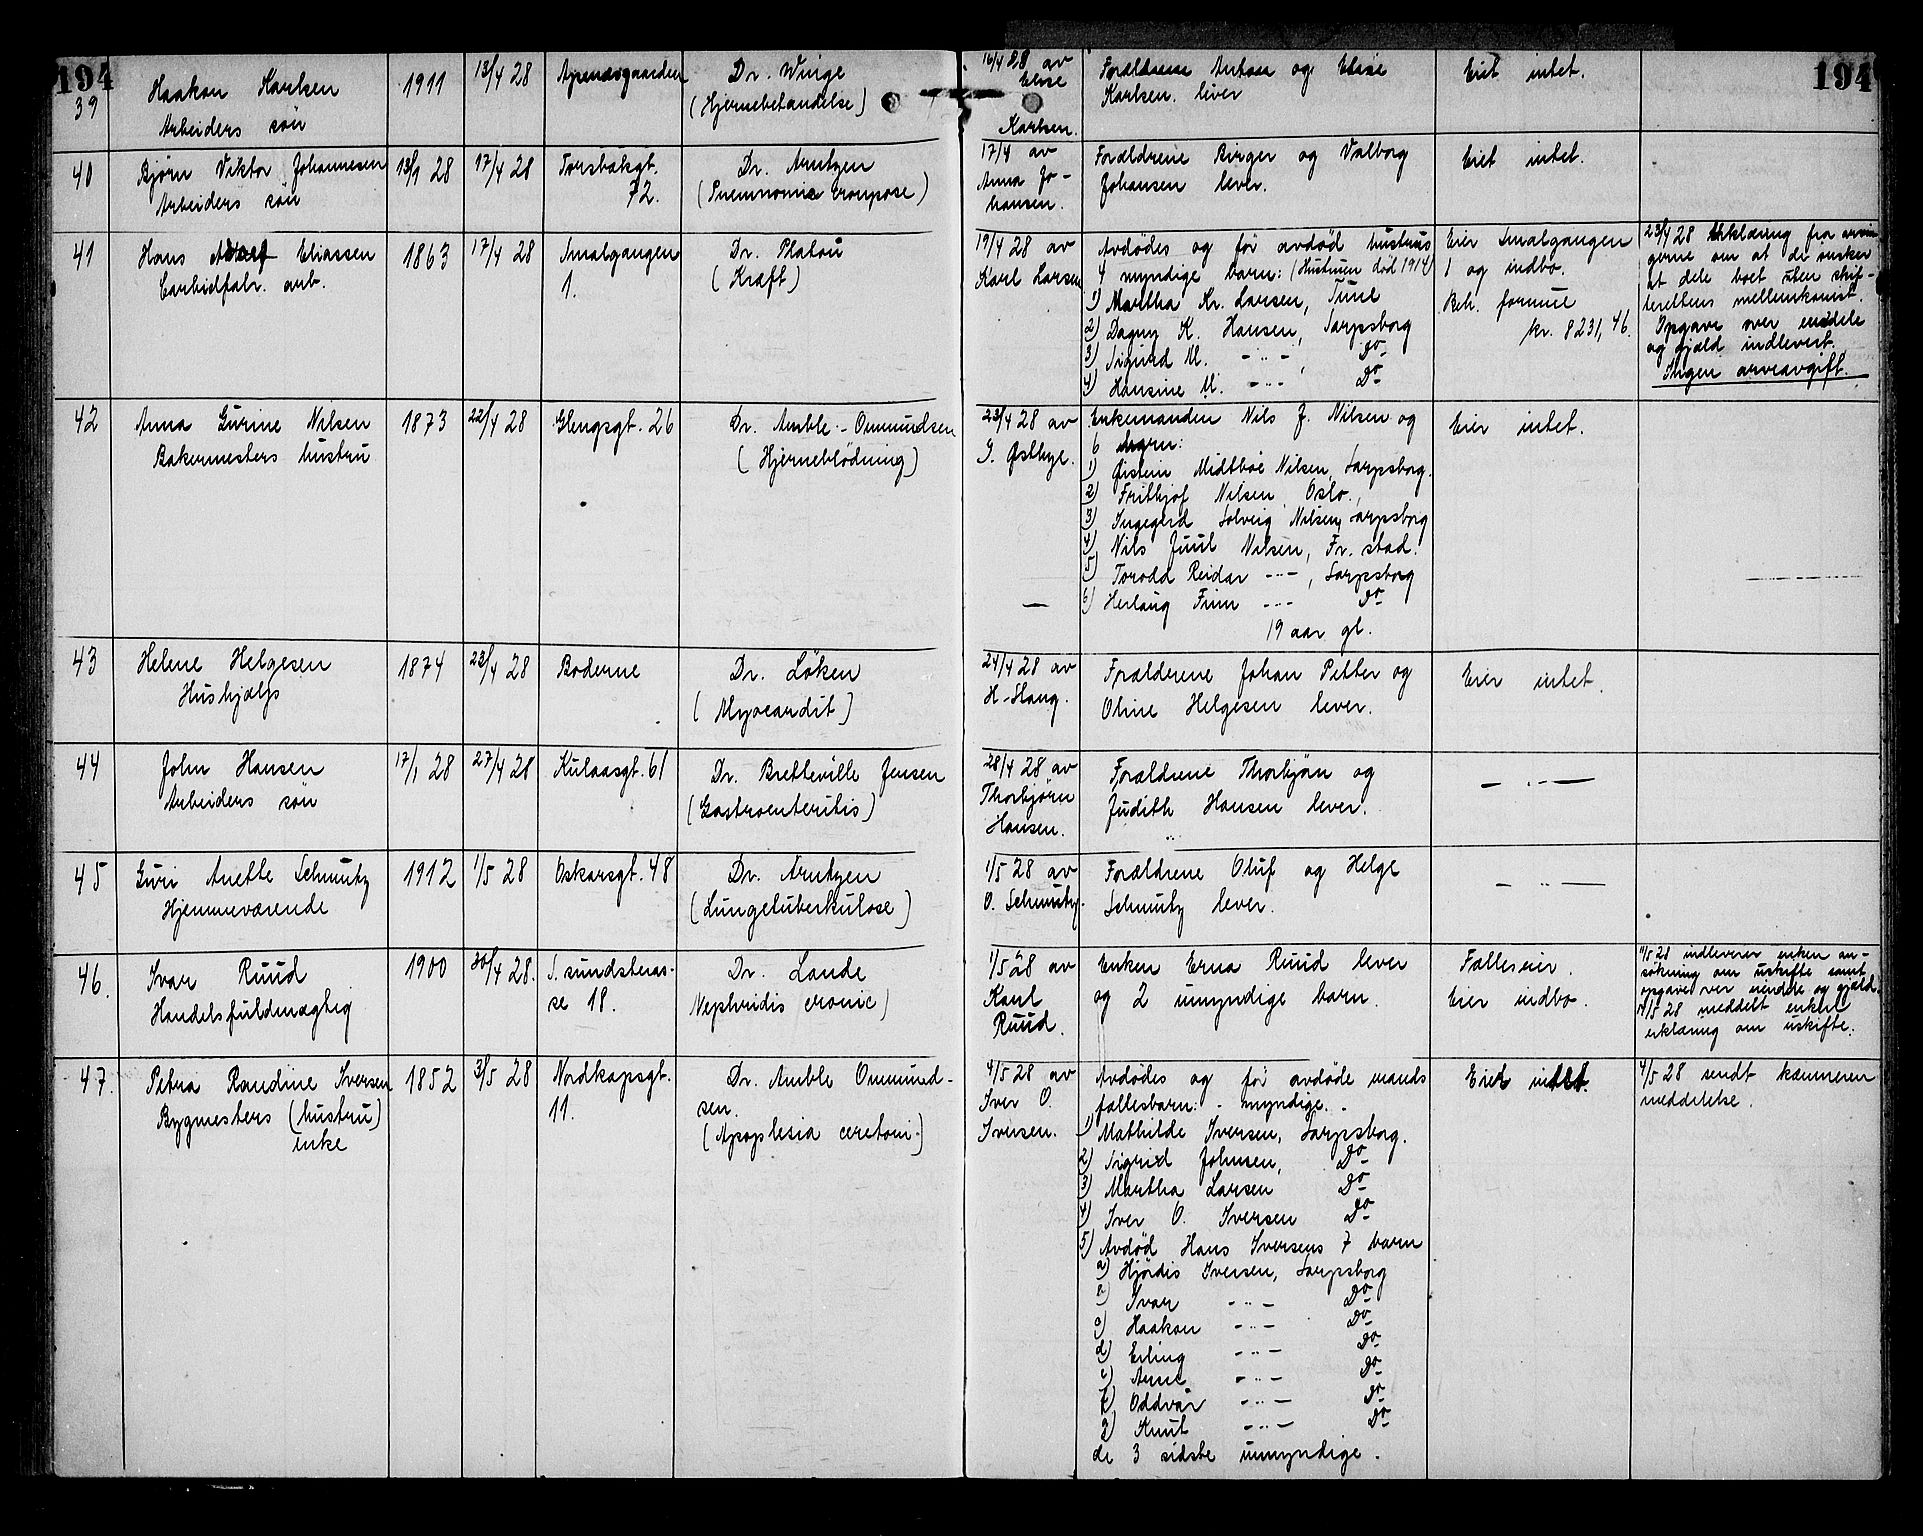 194
194
39
Haakon Karlsen
Arbeiders søn
1911
13/4 28
Apenesgaarden
Dr. Winge
(Hjernebetændelse)
16/4 28 av
Elise
Karlsen.
Forældrene Anton og Elise
Karlsen. lever
Eiet intet.
40
Bjørn Viktor Johannesen
Arbeiders søn
13/1 28
17/4 28
Torsbäkgt.
72.
Dr. Arntzen
(Pneumonia croupose)
17/4 av
Anna Jo-
hansen.
Forældrene Birger og Valborg
Johansen lever.
Eiet intet.
41
Hans Eliassen
Carbidfabr. arb.
1863
17/4 28
Smalgangen
1.
Dr. Platou
(Kræft)
19/4 28 av
Karl Larsen
Avdødes og før avdød hustrus
4 myndige barn: (Hustruen död 1914)
1) Martha Kr. Larsen, Tune
2) Dagny K. Hansen, Sarpsborg
3) Sigurd M. -"- , Do
4) Hansine M. -"- Do
Eier Smalgangen
1 og indbo.
Beh. formue
kr. 8231,46.
23/4 28 Erklæring fra arvin
gerne om at de ønsker
at dele boet uten skif-
terettens mellemkomst.
Opgave over eiendele
og gjæld indlevert.
Ingen arveavgift.
42
Anna Gurine Nilsen
Bakermesters hustru
1873
22/4 28
Glengsgt. 26
Dr. Amble-Ommundsen
(Hjerneblödning)
23/4 28 av
G. Østbye.
Enkemanden Nils J. Nilsen og
6 barn:
1) Øistein Midtböe Nilsen, Sarpsborg.
2) Frithjof Nilsen, Oslo.,
3) Ingegerd Solveig Nilsen, Sarpsborg
4) Nils Juul Nilsen, Fr. stad.
5) Torodd Reidar -"-, Sarpsborg
6) Herlaug Finn -"- Do
19 aar gl.
Eier intet.
43
Helene Helgesen
Hushjælp
1874
23/4 28
Boderne
Dr. Löken
(Myocardit)
24/4 28 av
H. Haug.
Forældrene Johan Petter og
Oline Helgesen lever.
Eier intet.
44
John Hansen
Arbeiders søn
17/1 28
27/4 28
Kulaasgt. 61
Dr. Bretteville Jensen
(Gastroenteritis)
28/4 28 av
Thorbjørn
Hansen.
Forældrene Thorbjørn og
Judith Hansen lever.
-"-
45
Guri Anette Schmutz
Hjemmeværende
1912
1/5 28
Oskarsgt. 48
Dr. Arntzen
(Lungetuberkulose)
1/5 28 av
O. Schmutz.
Forældrene Oluf og Helge
Schmutz lever.
-"-
46.
Ivar Ruud
Handelsfuldmægtig
1900
30/4 28.
S. sundsteras-
se 18.
Dr. Lande
Nephridis cronic)
1/5 28 av
Karl
Ruud.
Enken Erna Ruud lever
og 2 umyndige barn.
Fælleseier.
Eier indbo.
11/5 28 indleverer enken an-
søkning om uskifte samt
opgave over eiendele og gjæld.
14/5 28 meddelt enken
erklæring om uskifte.
47.
Petra Randine Iversen
Bygmesters (hustru)
enke
1852
3/5 28
Nordkapsgt.
11.
Dr. Amble Ommund-
sen.
(Apoplesia ceretoni.)
4/5 28 av
Iver O.
Iversen.
Avdødes og før avdøde mands
fællesbarn: - myndige. -
1) Mathilde Iversen, Sarpsborg.
2) Sigrid Johnsen, Do
3) Martha Larsen Do
4) Iver O. Iversen Do
5) Avdød Hans Iversens 7 barn
a) Hjördis Iversen, Sarpsborg
b) Ivar -"- Do
c) Haakon -"- Do
d) Erling -"- Do
e) Arne -"- Do
f) Oddvar -"- Do
g) Knut -"- Do
de 3 sidste umyndige.
Eiet intet.
4/5 28 sendt kæmneren
meddelelse.